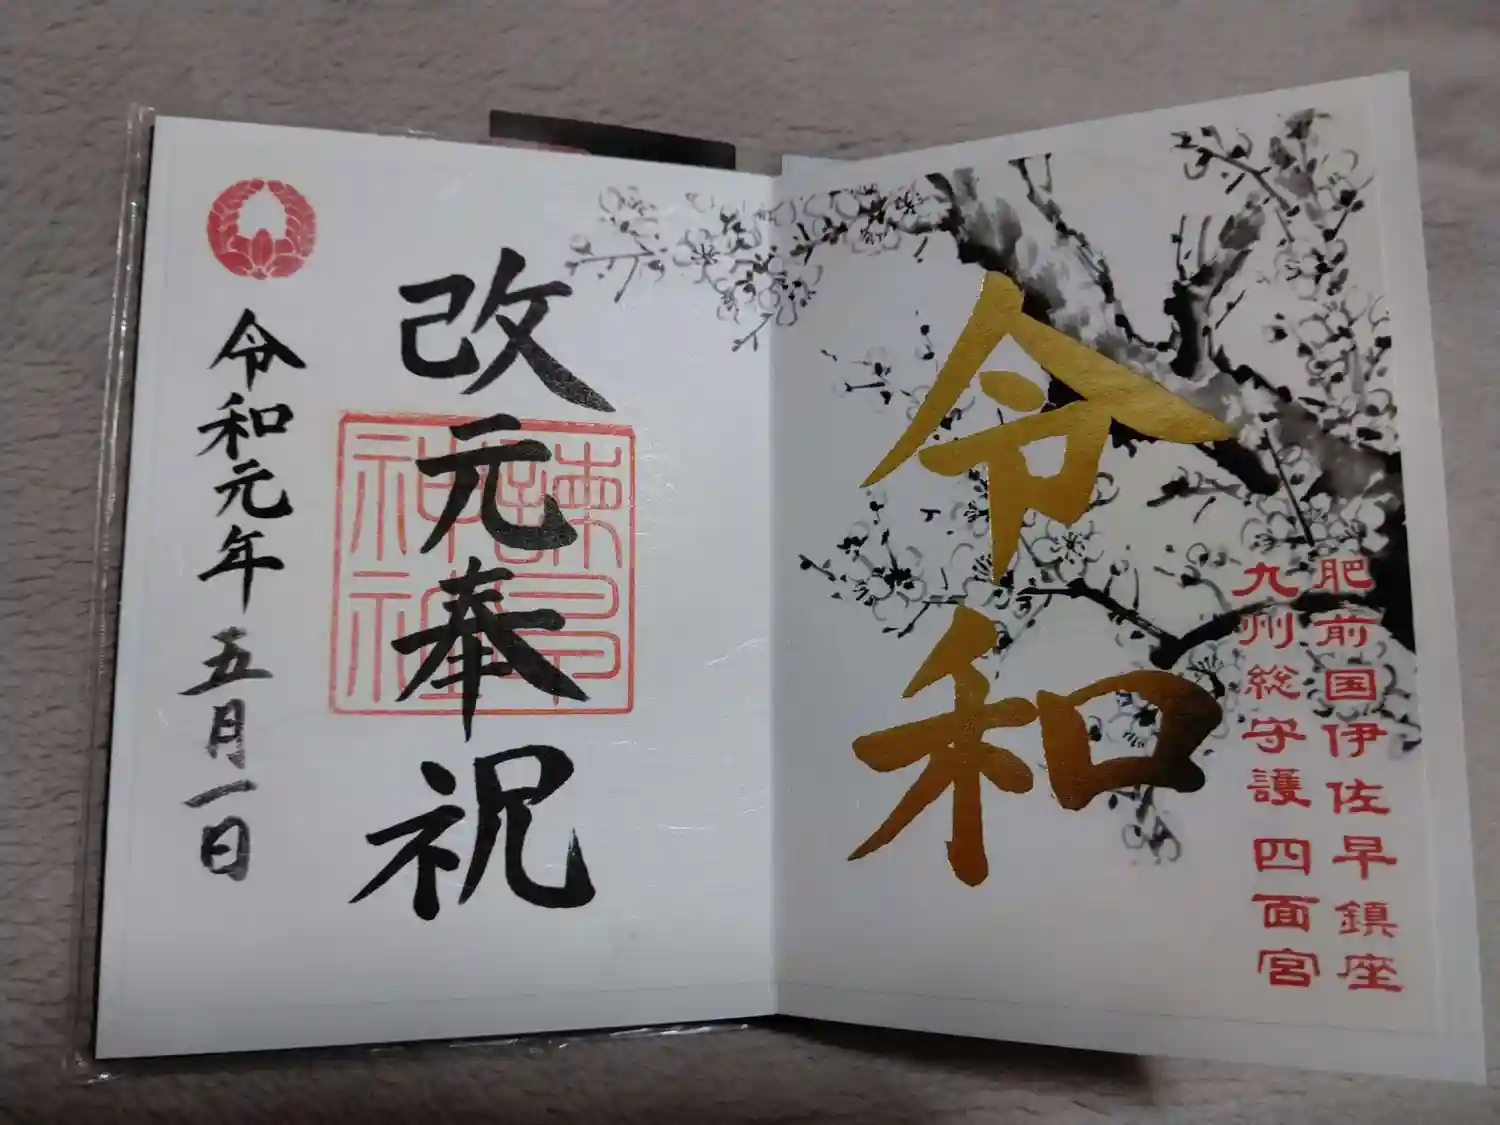 肥前国伊佐早鎮座
九州総守護 四面宮
令和
改元奉祝
諫早神社
令和元年五月一日